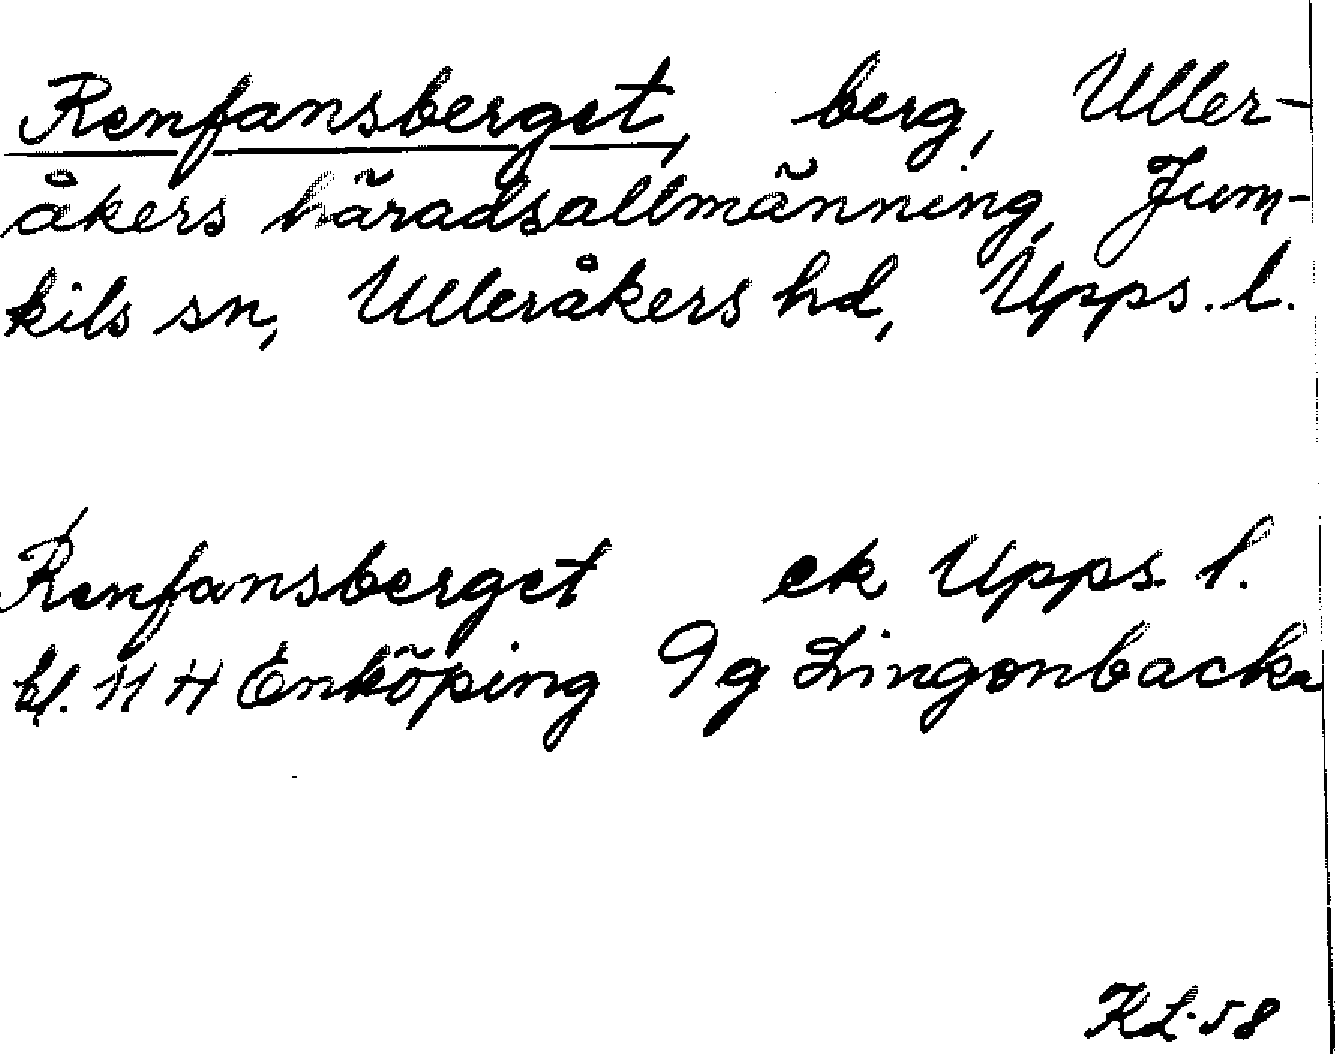 Renfansberget, berg, Uller-
åkers häradsallmänning, Jum-
kils sn, Ulleråkers hd, Upps. l.
Renfansberget ek Upps. l.
bl. 11 H Enköping 9g Lingonbacka
KL. 58